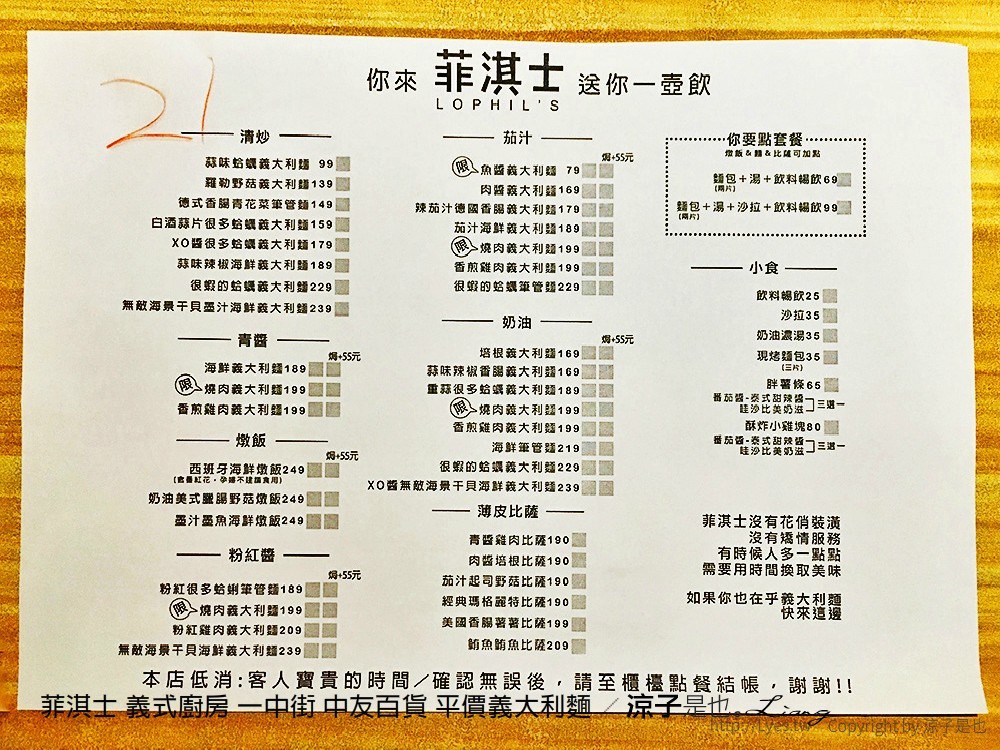 你來 菲淇士 送你一壺飲
LOPHIL'S
21
清炒
蒜味蛤蠣義大利麵 99
羅勒野菇義大利麵 139
德式香腸青花菜筆管麵 149
白酒蒜片很多蛤蠣義大利麵 159
XO醬很多蛤蠣義大利麵 179
蒜味辣椒海鮮義大利麵 189
很蝦的蛤蠣義大利麵 229
無敵海景干貝墨汁海鮮義大利麵 239
青醬
焗+55元
海鮮義大利麵 189
限 燒肉義大利麵 199
香煎雞肉義大利麵 199
燉飯
焗+55元
西班牙海鮮燉飯 249
(含番紅花,孕婦不建議食用)
奶油美式臘腸野菇燉飯 249
墨汁墨魚海鮮燉飯 249
粉紅醬
焗+55元
粉紅很多蛤蜊筆管麵 189
限 燒肉義大利麵 199
粉紅雞肉義大利麵 209
無敵海景干貝海鮮義大利麵 239
茄汁
焗+55元
限 魚醬義大利麵 79
肉醬義大利麵 169
辣茄汁德國香腸義大利麵 179
茄汁海鮮義大利麵 189
限 燒肉義大利麵 199
香煎雞肉義大利麵 199
很蝦的蛤蠣筆管麵 229
奶油
焗+55元
培根義大利麵 169
蒜味辣椒香腸義大利麵 169
重蒜很多蛤蠣義大利麵 189
限 燒肉義大利麵 199
香煎雞肉義大利麵 199
海鮮筆管麵 219
很蝦的蛤蠣義大利麵 229
XO醬無敵海景干貝海鮮義大利麵 239
薄皮比薩
青醬雞肉比薩 190
肉醬培根比薩 190
茄汁起司野菇比薩 190
經典瑪格麗特比薩 190
美國香腸薯薯比薩 199
鮪魚鮪魚比薩 209
你要點套餐
燉飯&麵&比薩可加點
麵包+湯+飲料暢飲 69
(兩片)
麵包+湯+沙拉+飲料暢飲 99
(兩片)
小食
飲料暢飲 25
沙拉 35
奶油濃湯 35
現烤麵包 35
(三片)
胖薯條 65
番茄醬-泰式甜辣醬
哇沙比美奶滋 三選一
酥炸小雞塊 80
番茄醬-泰式甜辣醬
哇沙比美奶滋 三選一
菲淇士沒有花俏裝潢
沒有矯情服務
有時候人多一點點
需要用時間換取美味
如果你也在乎義大利麵
快來這邊
本店低消:客人寶貴的時間/確認無誤後,請至櫃檯點餐結帳,謝謝!!
菲淇士 義式廚房 一中街 中友百貨 平價義大利麵 / 涼子是也 Liang
http://lyes.tw Copyright by 涼子是也